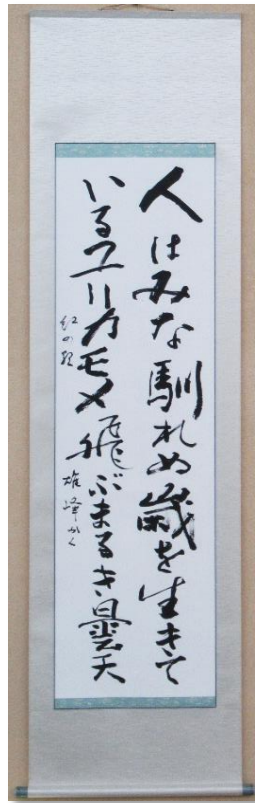 人はみな馴れぬ歳を生きて
いるユリカモメ飛ぶまるき曇天
紅の歌 雄峰かく